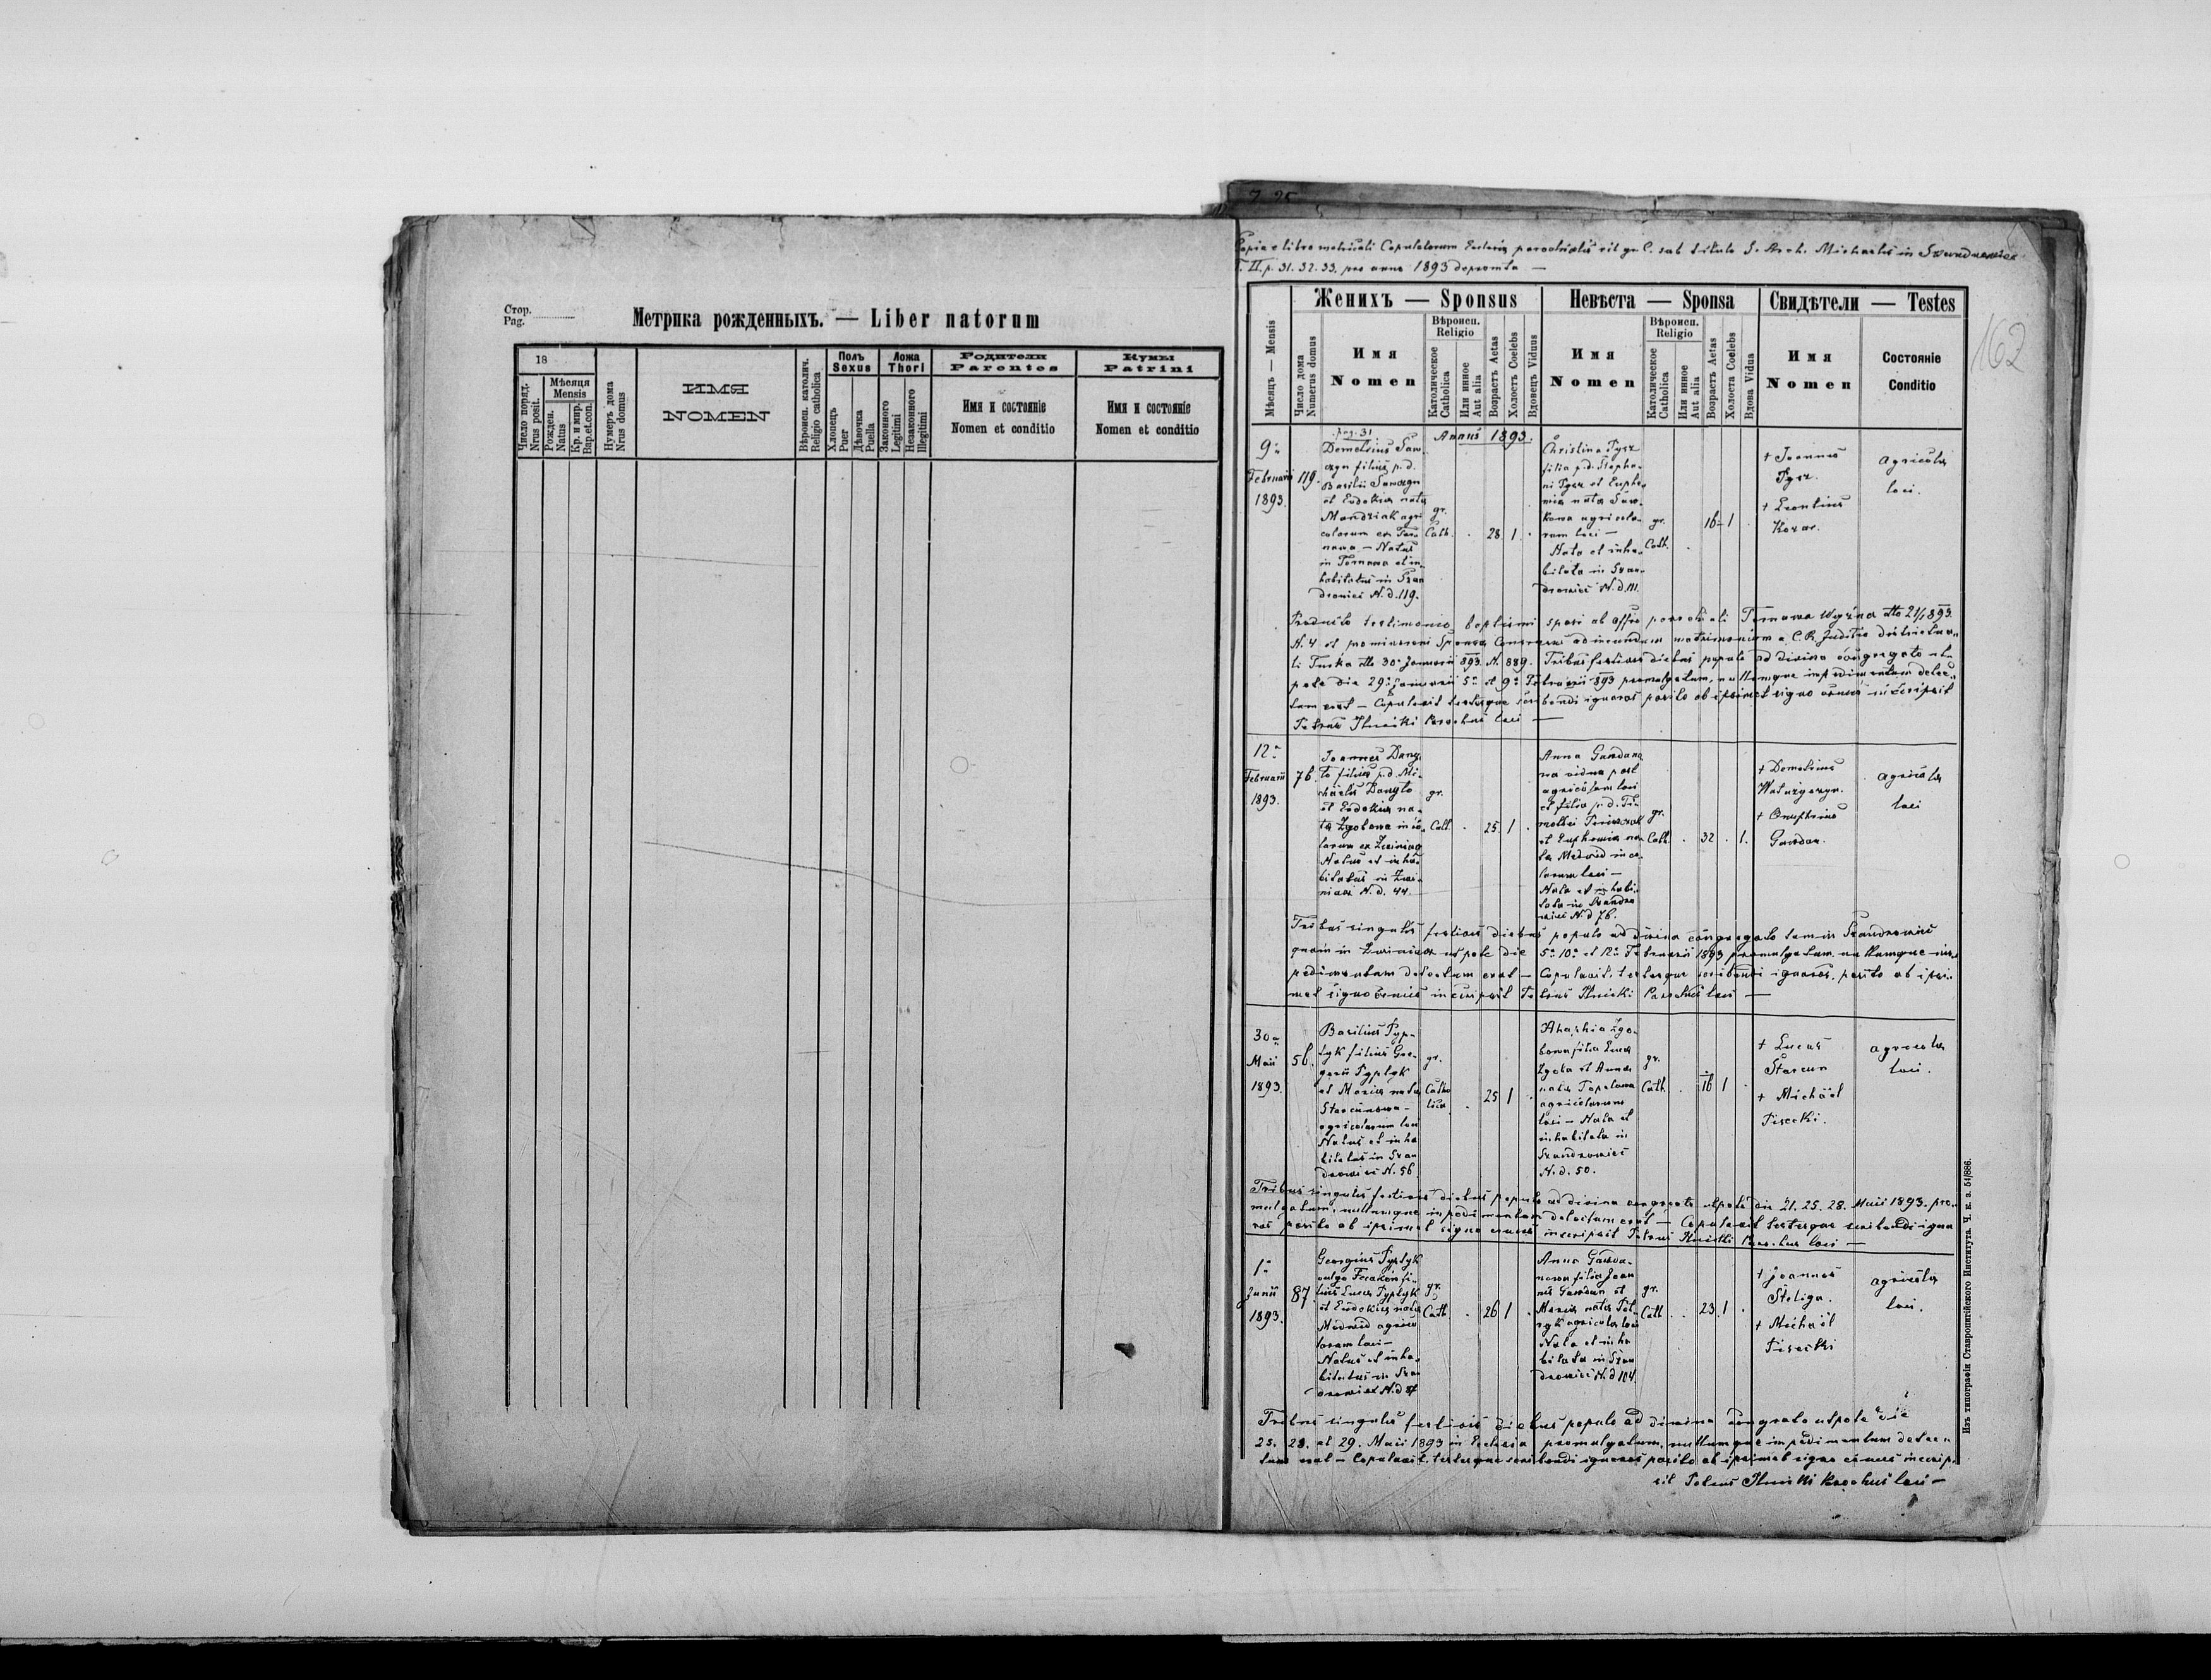 Стор.
Pag.
Метрика рожденныхъ. — Liber natorum
18
Число поряд.
Nrus posit.
Мѣсяця
Mensis
Рожден.
Natus
Кр. и мир.
Bap.et.con.
Нумеръ дома
Nrus domus
ИМЯ
NOMEN
Вѣроисп. католич.
Religio catholica
Полъ
Sexus
Хлопець
Puer
Дѣвочка
Puella
Ложа
Thori
Законного
Legitimi
Незаконного
Illegitimi
Родители
Parentes
Имя и состояніе
Nomen et conditio
Кумы
Patrini
Имя и состояніе
Nomen et conditio
Copia e libro metricali Copulatorum Ecclesiae parochialis rit. gr. C. sub titulo S. Arch. Michaelis in
T. II. p. 31. 32. 33. pro anno 1893 deprompta —
162
Женихъ — Sponsus
Невѣста — Sponsa
Свидѣтели — Testes
Мѣсяцъ — Mensis
Число дома
Numerus domus
Имя
Nomen
Вѣроисп.
Religio
Католическое
Catholica
Или инное
Aut alia
Возрастъ Aetas
Холостъ Coelebs
Вдовецъ Viduus
Имя
Nomen
Вѣроисп.
Religio
Католическое
Catholica
Или инное
Aut alia
Возрастъ Aetas
Холоста Coelebs
Вдова Vidua
Имя
Nomen
Состояніе
Conditio
pag. 31
Annus 1893.
9a
Februarii
1893.
119.
Demetrius
filius p.d.
Basilii
et Eudokia nata
agri
colarum ex
Natus
in Tarnawa et in
habitatus in
N. d. 119.
gr.
Cath.
28
1
Christina
filia p.d. Stepha
ni et Euphe
mia nata
agricola
rum loci —
Nata et inha
bitata in Szan
drowiec N. d. 111.
gr.
Cath.
16
1
+ Joannes
+ Leontius
Kozar.
agricolae
loci.
Producto testimonio baptismi sponsi ab offio parochiali Tarnawa Wyżna dto 21/1 893.
N. 4 et permissioni Sponsae ad ineundum matrimonium a C. R. Juditio
Turka dto 30 Januarii 893. N. 889. Tribus festivis diebus populo ad divina congregato ut
pote die 29 Januarii 5a et 9a Februarii 893 promulgatum, nullumque impedimentum detec
tum erat — Copulavit testesque scribendi ignaros perito ab ipsimet signo crucis inscripsit
Petrus Ilnicki Parochus loci —
12a
Februarii
1893.
76
Joannes Dany
lo filius p.d. Mi
chaelis Danylo
et Eudokia na
ta
larum ex
Natus et inha
bitatus in
N. d. 44.
gr.
Cath.
25
1
Anna
vidua post
agricolam loci
et filia p.d. Ti
mothei
et Euphemia na
ta Medwid
larum loci —
Nata et inhabi
tata in Szandro
wiec N. d 76.
gr.
Cath.
32
1.
+ Demetrius
+ Onuphrius
agricolae
loci
Tribus singulis festivis diebus populo ad divina congregato tam in Szandrowiec
quam in utpote die 5a 10a et 12a Februarii 1893 promulgatum nullumque im
pedimentum detectum erat — Copulavit, testesque scribendi ignaros, perito ab ipsi
met signo crucis inscripsit Petrus Ilnicki Parochus loci —
30a
Maii
1893.
56.
Basilius Typ
tyk filius Geo
rgii Typtyk
et Maria nata
agricolarum loci
Natus et inha
bitatus in Szan
drowiec N. 56
gr.
Catho
lica
25
1
filia Lucae
et Anna
nata
agricolarum
loci — Nata et
inhabitata in
Szandrowiec
N. d. 50.
gr.
Cath.
16
1
+ Lucas
+ Michäel
Tisecki.
agricolae
loci.
Tribus singulis festivis diebus populo ad divina congregato utpote die 21. 25. 28. Maii 1893. pro
mulgatum, nullumque impedimentum detectum erat — Copulavit testesque scribendi igna
ros perito ab ipsimet signo crucis inscripsit Petrus Ilnicki Parochus loci —
1a
Junii
1893.
87.
Georgius Typtyk
vulgo fi
lius Lucae Typtyk
et Eudokia nata
Medwid agrico
larum loci —
Natus et inha
bitatus in Szan
drowiec N. d 87
gr.
Cath.
26
1
Anna
filia Joan
nis et
Maria nata
agricolae loci
Nata et inha
bitata in Szan
drowiec N. d 104.
gr.
Cath.
23.
1
+ Joannes
Steliga.
+ Michäel
Tisecki
agricolae
loci.
Tribus singulis festivis diebus populo ad divina congregato utpote die
25. 28. et 29. Maii 1893 in Ecclesia promulgatum, nullumque impedimentum detec
tum erat — Copulavit, testesque scribendi ignaros perito ab ipsimet signo crucis inscrip
sit Petrus Ilnicki Parochus loci —
Изъ типографіи Ставропигійского Института. Ч. к. з. 54/886.